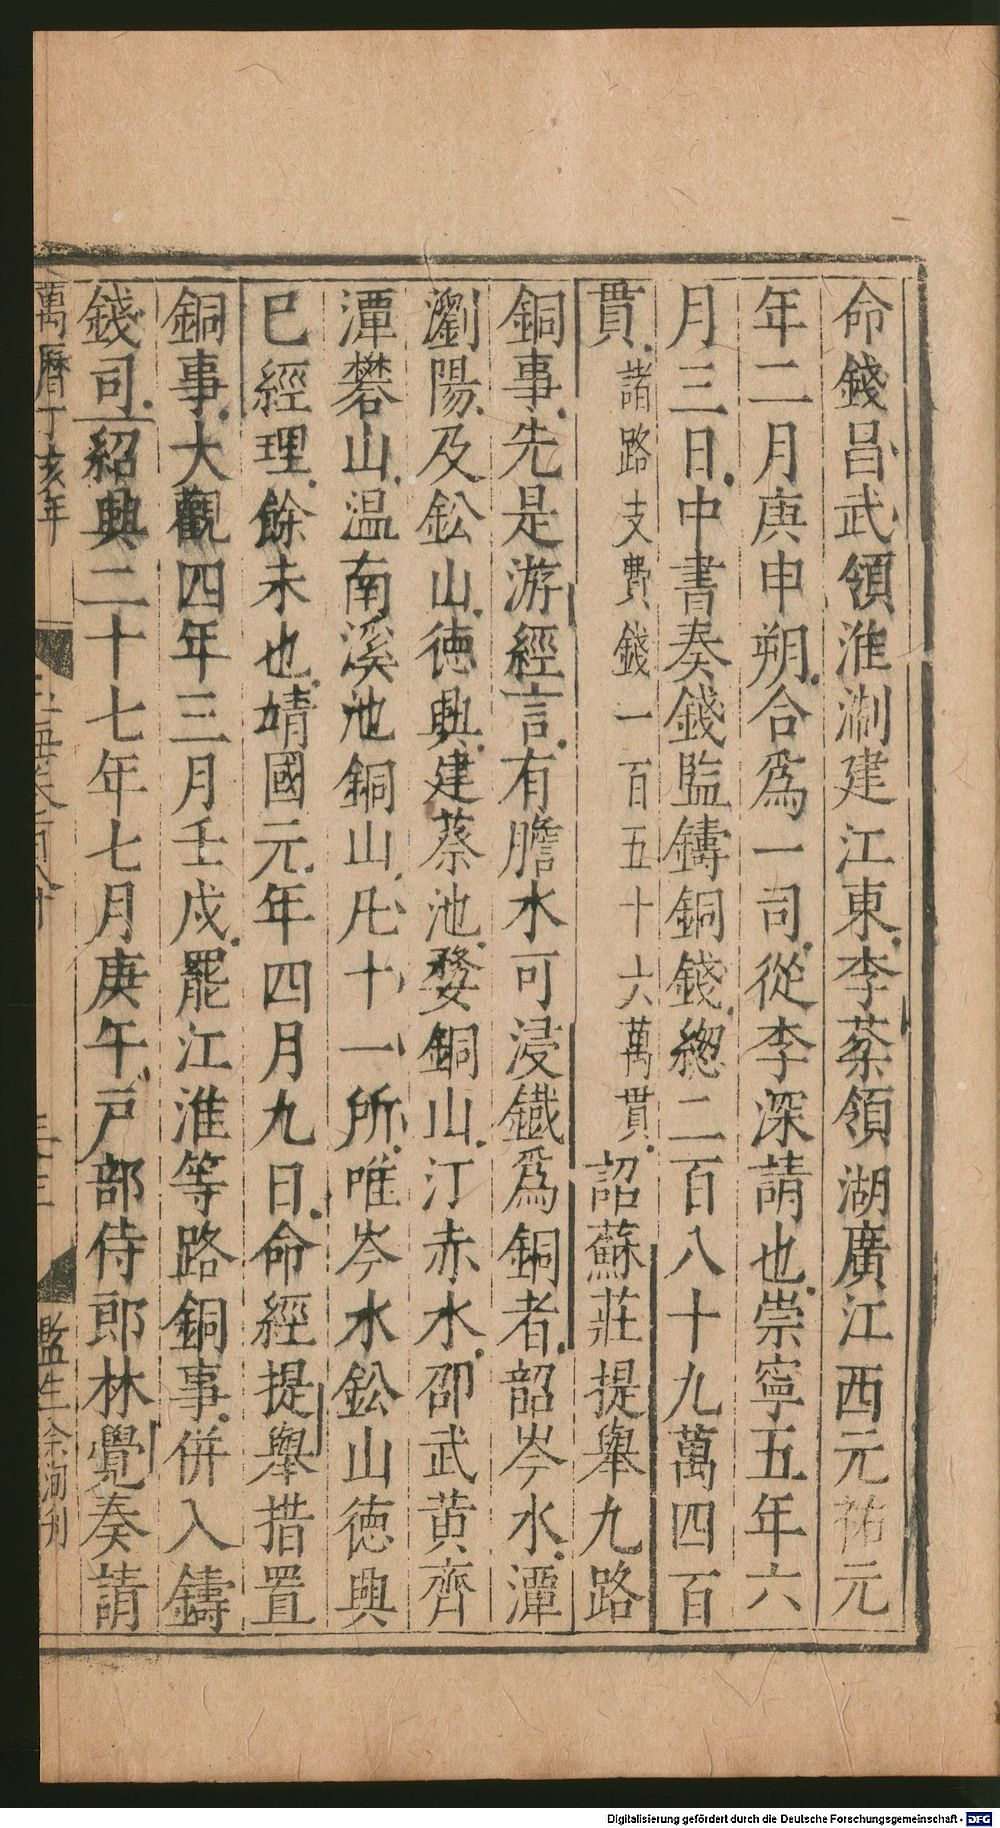 命錢昌武領淮淛建江東李棻領湖廣江西元祐元
年二月庚申朔合爲一司從李深請也崇寧五年六
月三日中書奏錢監鑄銅錢緫二百八十九萬四百
貫諸路支費錢一百五十六萬貫詔蘇莊提舉九路
銅事先是游經言有膽水可浸鐡爲銅者韶岑水潭
瀏陽及鈆山徳興建蔡池婺銅山汀赤水邵武黄齊
潭礬山温南溪池銅山凡十一所唯岑水鈆山徳興
已經理餘未也靖國元年四月九日命經提舉措置
銅事大觀四年三月壬戍罷江淮等路銅事併入鑄
錢司紹興二十七年七月庚午戸部侍郎林覺奏請
萬曆丁亥年
玉海卷一百八十
三十三
監生余洵刋
Digitalisierung gefördert durch die Deutsche Forschungsgemeinschaft - DFG